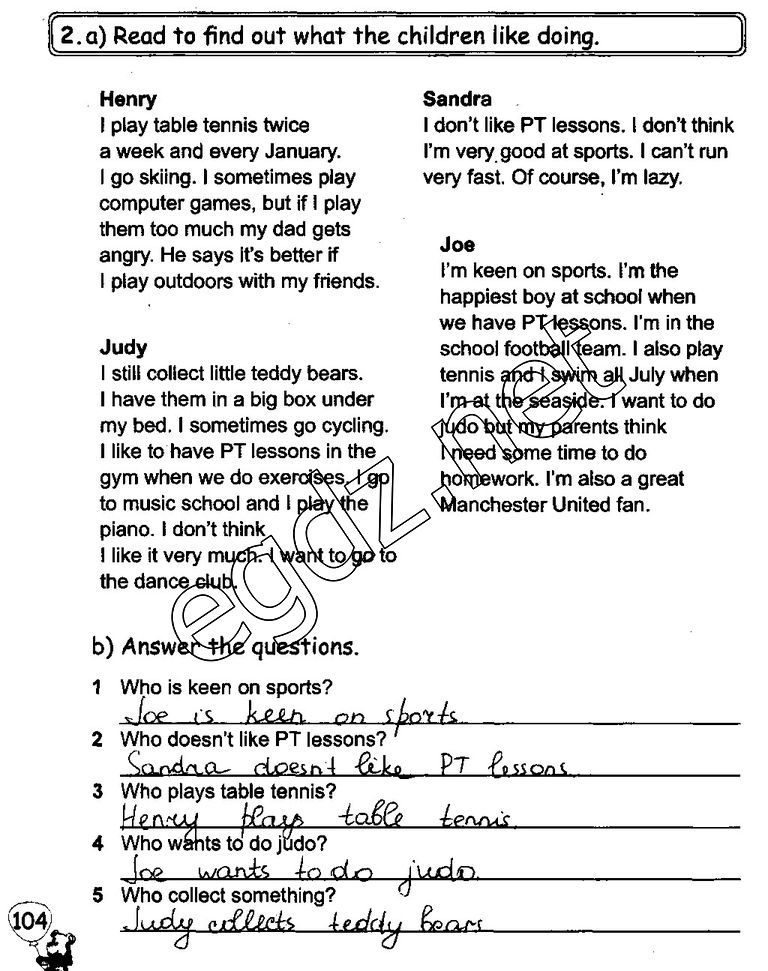 2. a) Read to find out what the children like doing.
Henry
I play table tennis twice
a week and every January.
I go skiing. I sometimes play
computer games, but if I play
them too much my dad gets
angry. He says it's better if
I play outdoors with my friends.
Judy
I still collect little teddy bears.
I have them in a big box under
my bed. I sometimes go cycling.
I like to have PT lessons in the
gym when we do exercises. I go
to music school and I play the
piano. I don't think
I like it very much. I want to go to
the dance club.
Sandra
I don't like PT lessons. I don't think
I'm very good at sports. I can't run
very fast. Of course, I'm lazy.
Joe
I'm keen on sports. I'm the
happiest boy at school when
we have PT lessons. I'm in the
school football team. I also play
tennis and I swim all July when
I'm at the seaside. I want to do
judo but my parents think
I need some time to do
homework. I'm also a great
Manchester United fan.
egdz.net
b) Answer the questions.
1 Who is keen on sports?
Joe is keen on sports
2 Who doesn't like PT lessons?
Sandra doesn't like PT lessons
3 Who plays table tennis?
Henry plays table tennis
4 Who wants to do judo?
Joe wants to do judo.
5 Who collect something?
Judy collects teddy bears
104